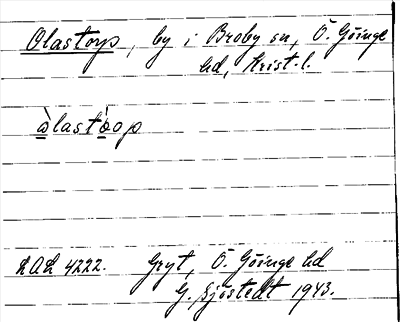 Olastorp, by i Broby sn, Ö. Göinge
hd, Krist. l.
òlastòop
LAL 4222. Gryt, Ö. Göinge hd
G. Sjöstedt 1943.